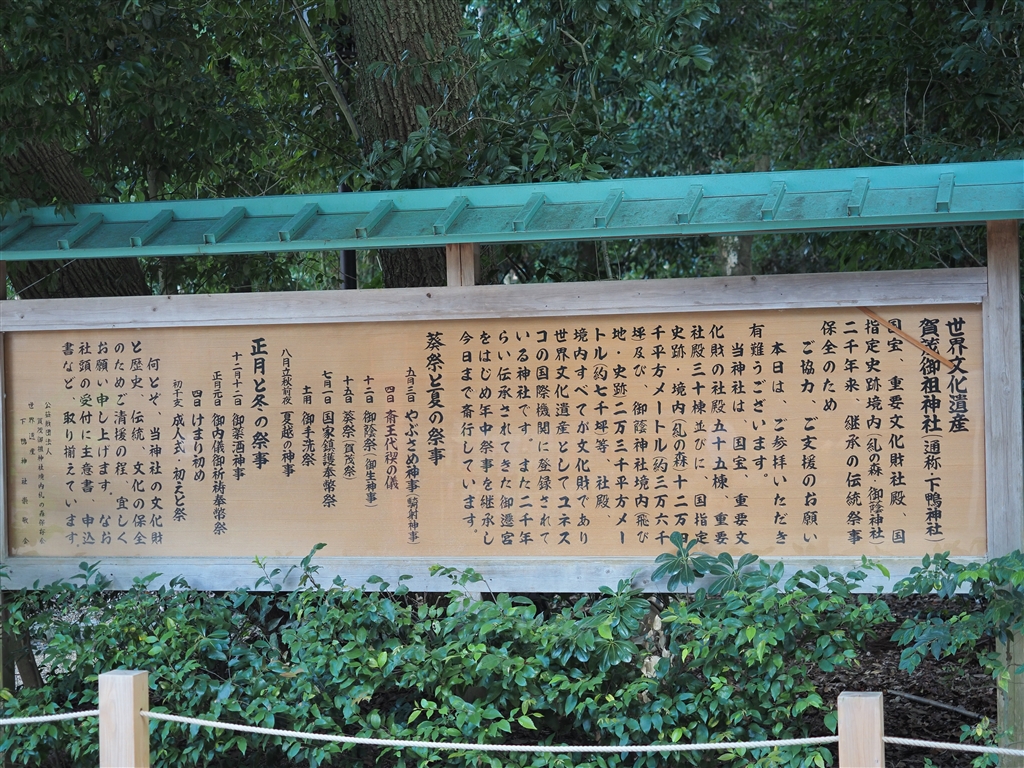 世界文化遺産
賀茂御祖神社（通称、下鴨神社）
国宝、重要文化財社殿、国
指定史跡境内（糺の森、御蔭神社）
二千年来、継承の伝統祭事
保全のため
ご協力、ご支援のお願い
本日は、ご参拝いただき
有難うございます。
当神社は、国宝、重要文
化財の社殿五十五棟、重要
社殿三十棟並びに、国指定
史跡・境内（糺の森、十二万四
千平方メートル約三万六千
坪）及び、御蔭神社境内（飛び
地・史跡）二万三千平方メー
トル約七千坪等、社殿、
境内すべてが文化財であり
世界文化遺産としてユネス
コの国際機関に登録されて
いる神社です。また二千年
らい伝承されてきた御遷宮
をはじめ年中祭事を継承し
今日まで斎行しています。
葵祭と夏の祭事
五月三日 やぶさめ神事（騎射神事）
四日 斎王代禊の儀
十二日 御蔭祭（御生神事）
十五日 葵祭（賀茂祭）
七月一日 国家鎮護奉幣祭
土用 御手洗祭
八月立秋前夜 夏越の神事
正月と冬の祭事
十二月十二日 御薬酒神事
正月元日 御内儀御祈祷奉幣祭
四日 けまり初め
初子亥 成人式、初えと祭
何とぞ、当神社の文化財
と歴史、伝統、文化の保全
のためご清援の程、宜しく
お願い申し上げます。なお
社頭の受付に主意書、申込
書など、取り揃えています。
公益財団法人
世界遺産
下鴨神社崇敬会